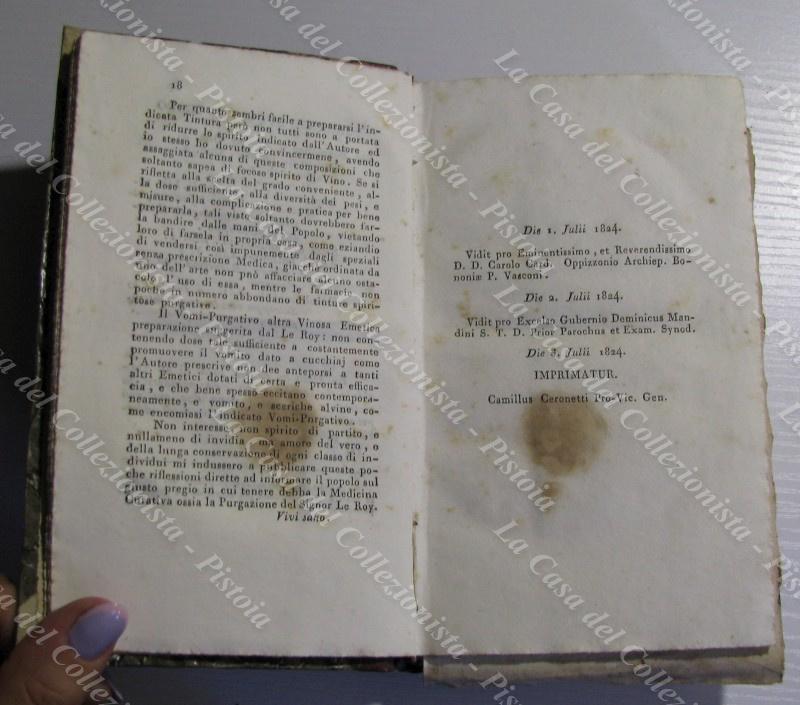 18
Per quanto sembri facile a prepararsi l'in-
dicata Tintura però non tutti sono a portata
di ridurre lo spirito indicato dall'Autore ed
io stesso ho dovuto convincermene, avendo
assaggiata alcuna di queste composizioni che
soltanto sapea di focoso spirito di Vino. Se si
rifletta alla scelta del grado conveniente, al-
la dose sufficiente, alla diversità dei pesi, e
misure, alla complicazione e pratica per bene
prepararla, tali viste soltanto dovrebbero far-
la bandire dalle mani del Popolo, vietando
loro di farsela in propria casa, come eziandio
di vendersi così impunemente dagli speziali
senza prescrizione Medica, giacchè ordinata da
uno dell'arte non può affacciare alcuno osta-
colo l'uso di essa, mentre le farmacie non
poche in numero abbondano di tinture spiri-
tose purgative.
Il Vomi-Purgativo altra Vinosa Emetica
preparazione suggerita dal Le Roy: non con-
tenendo dose tale sufficiente a costantemente
promuovere il vomito dato a cucchiaj come
l'Autore prescrive non dee anteporsi a tanti
altri Emetici dotati di certa e pronta effica-
cia, e che bene spesso eccitano contempora-
neamente, e vomito, e scariche alvine, co-
me encomiasi l'indicato Vomi-Purgativo.
Non interesse, non spirito di partito, e
nullameno di invidia, ma amore del vero, e
della lunga conservazione di ogni classe di in-
dividui mi indussero a pubblicare queste po-
che riflessioni dirette ad informare il popolo sul
giusto pregio in cui tenere debba la Medicina
Curativa ossia la Purgazione del Signor Le Roy.
Vivi sano.
Die 1. Julii 1824.
Vidit pro Eminentissimo, et Reverendissimo
D. D. Carolo Card. Oppizzonio Archiep. Bo-
noniæ P. Vasconi.
Die 2. Julii 1824.
Vidit pro Excelso Gubernio Dominicus Man-
dini S. T. D. Prior Parochus et Exam. Synod.
Die 3. Julii 1824.
IMPRIMATUR.
Camillus Ceronetti Pro-Vic. Gen.
La Casa del Collezionista - Pistoia